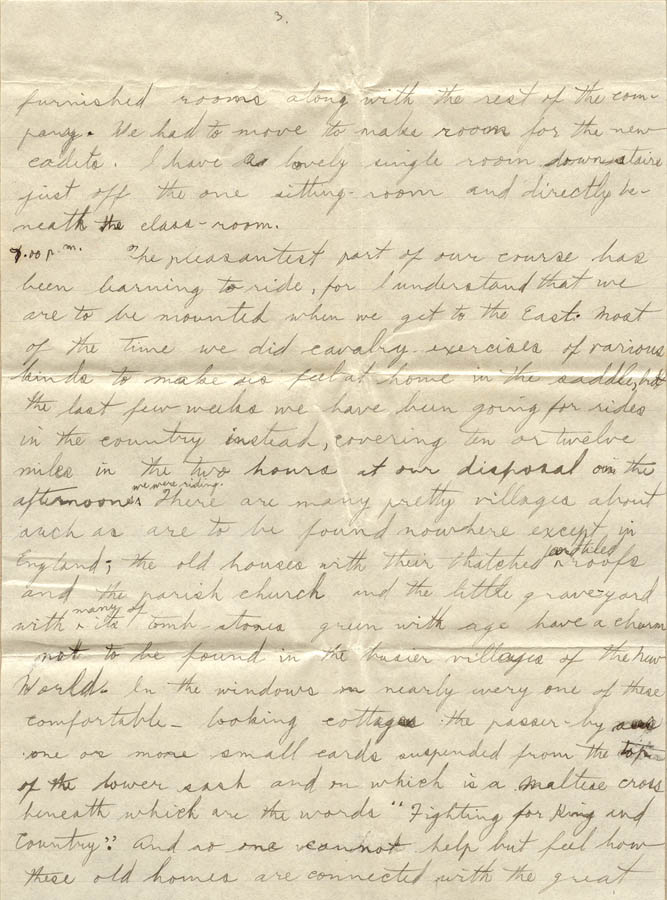 3.
furnished rooms along with the rest of the com-
pany. We had to move to make room for the new
cadets. I have a lovely single room down stairs
just off the one sitting-room and directly be-
neath the class-room.
7.00 p.m. The pleasantest part of our course has
been learning to ride, for I understand that we
are to be mounted when we get to the East. Most
of the time we did cavalry exercises of various
kinds to make us feel at home in the saddle, but
the last few weeks we have been going for rides
in the country instead, covering ten or twelve
miles in the two hours at our disposal on the
afternoons we were riding. There are many pretty villages about
such as are to be found nowhere except in
England; the old houses with their thatched and tiled roofs
and the parish church and the little grave-yard
with many of its tomb-stones green with age have a charm
not to be found in the busier villages of the New
World. In the windows in nearly every one of these
comfortable-looking cottages the passer-by sees
one or more small cards suspended from the top
of the lower sash and on which is a Maltese cross
beneath which are the words "Fighting for King and
Country". And so one cannot help but feel how
these old homes are connected with the great